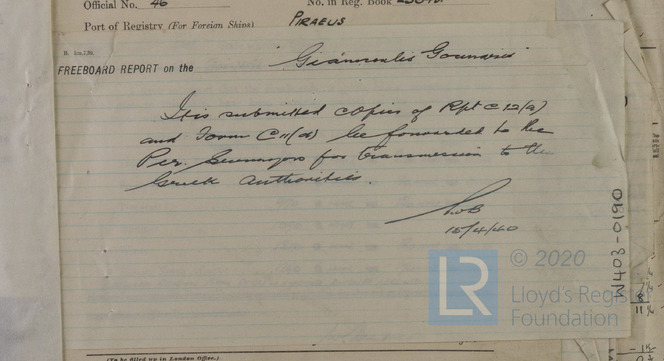 Official No. 46
No. in Reg. Book
Port of Registry (For Foreign Ships) PIRAEUS
FREEBOARD REPORT on the "Giannoulis Gounaris"
It is submitted copies of Rpt C12(a)
and Form C11(d) be forwarded to the
Per. Surveyors for transmission to the
Greek authorities.
12/4/40
W403-0190
LR
© 2020
Lloyd's Register
Foundation
(To be filled up in London Office.)